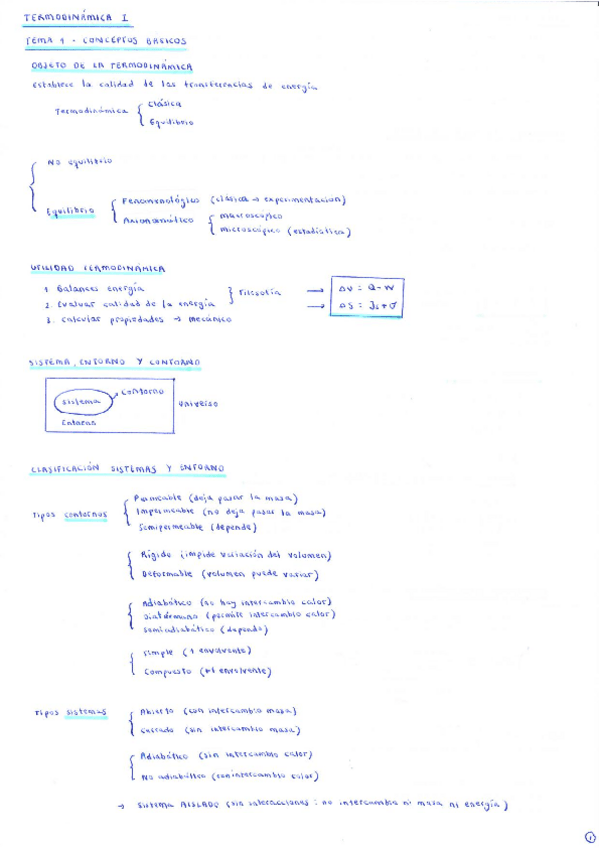 TERMODINÁMICA I
TEMA 1 - CONCEPTOS BÁSICOS
OBJETO DE LA TERMODINÁMICA
Establece la calidad de las transferencias de energía
Termodinámica
Clásica
Equilibrio
No equilibrio
Equilibrio
Fenomenológico (clásica → experimentación)
Axionomático
macroscópico
microscópico (estadística)
UTILIDAD TERMODINÁMICA
1. Balances energía
2. Evaluar calidad de la energía
3. Calcular propiedades → mecánico
Filosofía
→ ΔU = Q-W
→ ΔS = Js+σ
SISTEMA, ENTORNO Y CONTORNO
Contorno
Sistema
Universo
Entorno
CLASIFICACIÓN SISTEMAS Y ENTORNO
Tipos contornos
Permeable (deja pasar la masa)
Impermeable (no deja pasar la masa)
Semipermeable (depende)
Rígido (impide variación del volumen)
Deformable (volumen puede variar)
Adiabático (no hay intercambio calor)
Diatérmano (permite intercambio calor)
Semiadiabático (depende)
Simple (1 envolvente)
Compuesto (+1 envolvente)
Tipos sistemas
Abierto (con intercambio masa)
Cerrado (sin intercambio masa)
Adiabático (sin intercambio calor)
No adiabático (con intercambio calor)
→ Sistema AISLADO (sin interacciones : no intercambia ni masa ni energía)
1